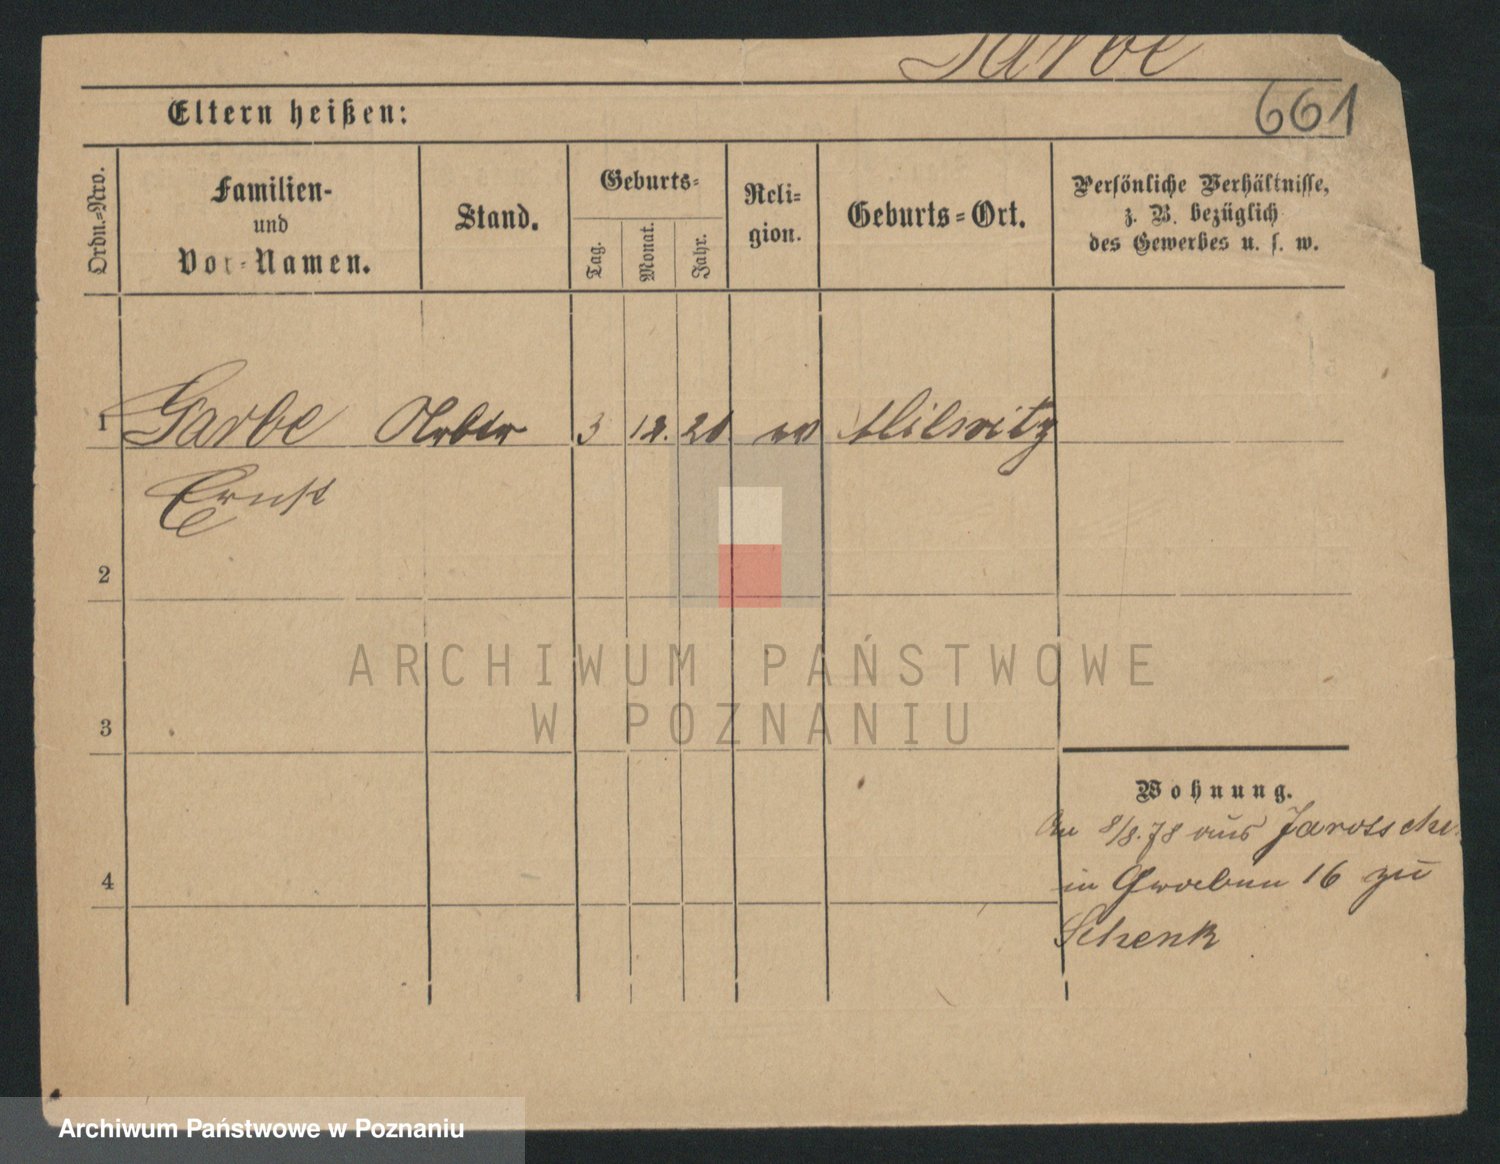 Garbe
661
Eltern heißen:
Ordn.-Nro.
Familien-
und
Vor-Namen.
Stand.
Geburts-
Tag.
Monat.
Jahr.
Reli-
gion.
Geburts-Ort.
Persönliche Verhältnisse,
z. B. bezüglich
des Gewerbes u. s. w.
1 Garbe Arbtr 3 12. 21
Ernst
2
3
4
Wohnung.
8/8.78 aus
in 16 zu
Schenk
ARCHIWUM PAŃSTWOWE
W POZNANIU
Archiwum Państwowe w Poznaniu